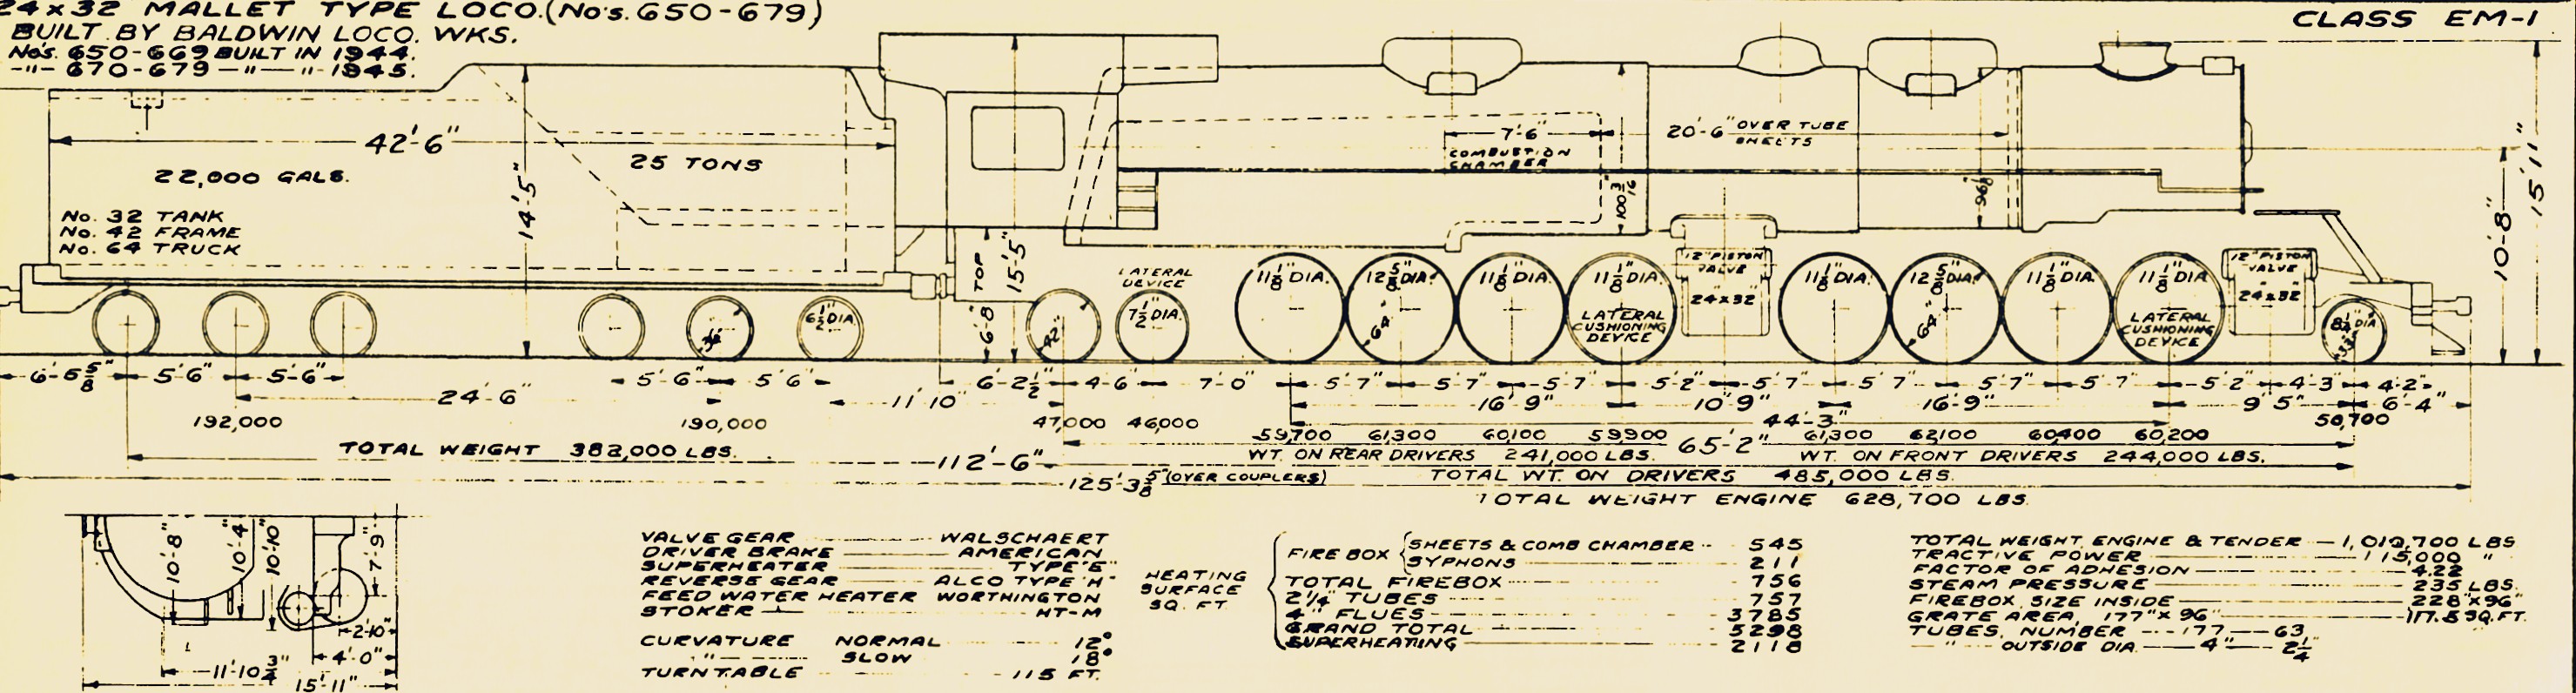 24x32 MALLET TYPE LOCO. (No's. 650-679)
BUILT BY BALDWIN LOCO. WKS.
No's. 650-669 BUILT IN 1944.
-"- 670-679 -"- -"- 1945.
CLASS EM-1
42'-6"
22,000 GALS.
25 TONS
14'-5"
No. 32 TANK
No. 42 FRAME
No. 64 TRUCK
7'-6"
COMBUSTION
CHAMBER
20'-6" OVER TUBE
SHEETS
100 3/16"
15'-11"
10'-8"
6'-8" TOP
15'-5"
LATERAL
DEVICE
6 1/2" DIA.
36"
42"
7 1/2" DIA.
11 1/8" DIA. 12 5/8" DIA. 11 1/8" DIA. 11 1/8" DIA.
64"
LATERAL
CUSHIONING
DEVICE
12" PISTON
VALVE
24"x32"
11 1/8" DIA. 12 5/8" DIA. 11 1/8" DIA. 11 1/8" DIA.
64"
LATERAL
CUSHIONING
DEVICE
12" PISTON
VALVE
24"x32"
6'-5 5/8" 5'-6" 5'-6" 5'-6" 5'-6" 6'-2 1/2" 4'-6" 7'-0" 5'-7" 5'-7" 5'-7" 5'-2" 5'-7" 5'-7" 5'-7" 5'-7" 5'-2" 4'-3" 4'-2"
24'-6" 11'-10" 16'-9" 10'-9" 16'-9" 9'-5" 6'-4"
44'-3"
192,000 190,000 47,000 46,000 59,700 61,300 60,100 59,900 61,300 62,100 60,400 60,200 50,700
65'-2"
TOTAL WEIGHT 382,000 LBS.
WT. ON REAR DRIVERS 241,000 LBS. WT. ON FRONT DRIVERS 244,000 LBS.
112'-6"
125'-3 5/8" (OVER COUPLERS)
TOTAL WT. ON DRIVERS 485,000 LBS.
TOTAL WEIGHT ENGINE 628,700 LBS.
10'-8" 10'-4" 10'-10" 7'-9"
2'-10"
4'-0"
11'-10 3/4"
15'-11"
VALVE GEAR WALSCHAERT
DRIVER BRAKE AMERICAN
SUPERHEATER TYPE "E"
REVERSE GEAR ALCO TYPE "H"
FEED WATER HEATER WORTHINGTON
STOKER HT-M
CURVATURE NORMAL 12°
" SLOW 18°
TURNTABLE 115 FT.
HEATING
SURFACE
SQ. FT.
FIRE BOX { SHEETS & COMB CHAMBER 545
SYPHONS 211
TOTAL FIREBOX 756
2 1/4" TUBES 757
4" FLUES 3785
GRAND TOTAL 5298
SUPERHEATING 2118
TOTAL WEIGHT, ENGINE & TENDER 1,010,700 LBS
TRACTIVE POWER 115,000 "
FACTOR OF ADHESION 4.22
STEAM PRESSURE 235 LBS.
FIREBOX, SIZE INSIDE 228"x96"
GRATE AREA, 177"x96" 117.8 SQ. FT.
TUBES, NUMBER 177 63
" OUTSIDE DIA. 4" 2 1/4"